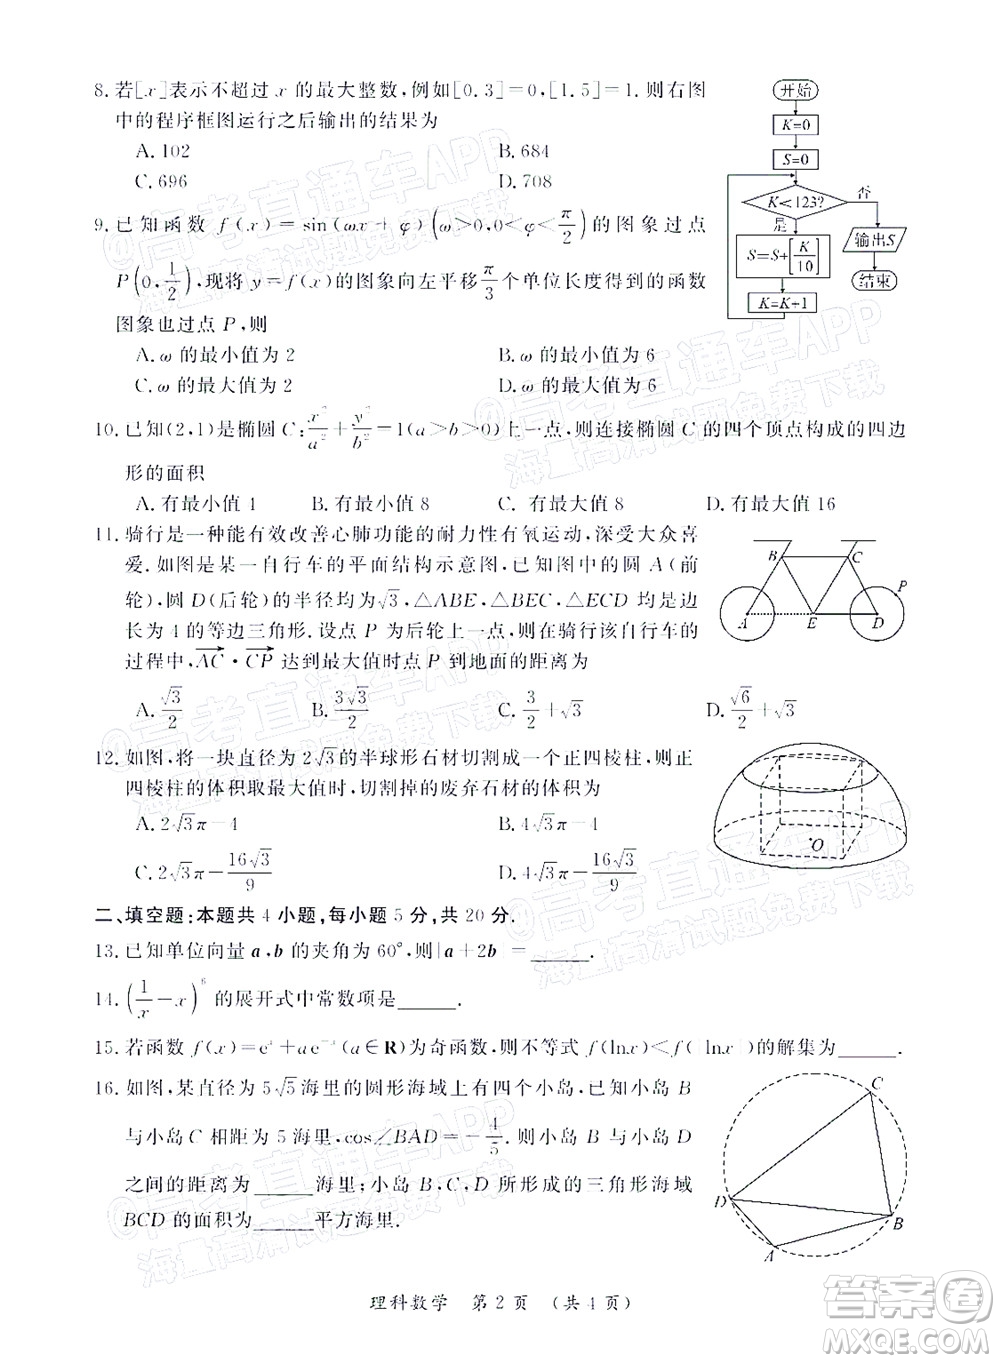 8. 若[x]表示不超过 x 的最大整数,例如[0.3]=0,[1.5]=1. 则右图
中的程序框图运行之后输出的结果为
A. 102 B. 684
C. 696 D. 708
开始
K=0
S=0
K<123?
否
是
S=S+[K/10]
输出S
K=K+1
结束
9. 已知函数 f(x)=sin(ωx+φ)(ω>0,0<φ<π/2)的图象过点
P(0,1/2),现将 y=f(x)的图象向左平移π/3个单位长度得到的函数
图象也过点 P,则
A. ω 的最小值为 2 B. ω 的最小值为 6
C. ω 的最大值为 2 D. ω 的最大值为 6
10. 已知(2,1)是椭圆 C:x²/a²+y²/b²=1(a>b>0)上一点,则连接椭圆 C 的四个顶点构成的四边
形的面积
A. 有最小值 4 B. 有最小值 8 C. 有最大值 8 D. 有最大值 16
11. 骑行是一种能有效改善心肺功能的耐力性有氧运动,深受大众喜
爱. 如图是某一自行车的平面结构示意图,已知图中的圆 A(前
轮),圆 D(后轮)的半径均为√3,△ABE,△BEC,△ECD 均是边
长为 4 的等边三角形. 设点 P 为后轮上一点,则在骑行该自行车的
过程中,AC·CP 达到最大值时点 P 到地面的距离为
A. √3/2 B. 3√3/2 C. 3/2+√3 D. √6/2+√3
B C P
A E D
12. 如图,将一块直径为 2√3的半球形石材切割成一个正四棱柱,则正
四棱柱的体积取最大值时,切割掉的废弃石材的体积为
A. 2√3π-4 B. 4√3π-4
C. 2√3π-16√3/9 D. 4√3π-16√3/9
O
二、填空题:本题共 4 小题,每小题 5 分,共 20 分.
13. 已知单位向量 a,b 的夹角为 60°,则|a+2b|=______.
14. (1/x-x)⁶ 的展开式中常数项是______.
15. 若函数 f(x)=eˣ+ae⁻ˣ(a∈R)为奇函数,则不等式 f(lnx)<f(|lnx|)的解集为______.
16. 如图,某直径为 5√5海里的圆形海域上有四个小岛,已知小岛 B
与小岛 C 相距为 5 海里,cos∠BAD=-4/5. 则小岛 B 与小岛 D
之间的距离为______海里;小岛 B,C,D 所形成的三角形海域
BCD 的面积为______平方海里.
C
D
B
A
理科数学 第 2 页 (共 4 页)
@高考直通车APP
海量高清试题免费下载
答案圈
MXQE.COM